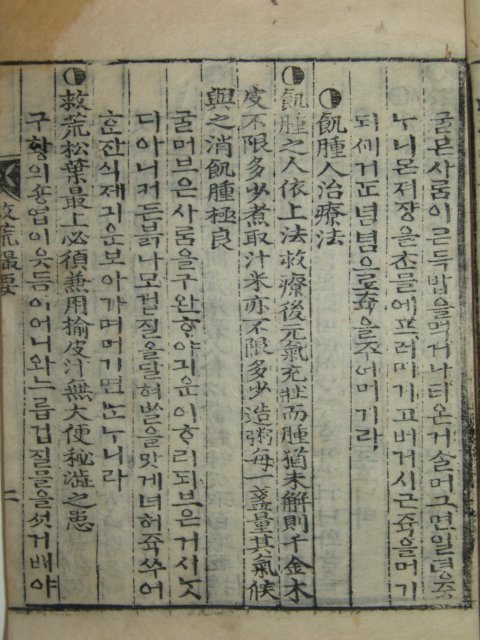 굴믄 사ᄅᆞ미 ᄀᆞᄅᆞᆫ 득밥을 머거나 더온 거슬 머그면 일뎡 죽
누니 몬져 쟝을 ᄎᆞᆫ믈에 프러 머기고 버거 시근 쥭을 머기
되 ᄭᆡ거ᄃᆞᆫ 념념으로 쥭을 주어 머기라
飢腫人治療法
飢腫之人依上法救療後元氣充壯而腫猶未解則千金木
皮不限多少煮取汁米亦不限多少造粥每一盞量其氣候
與之消飢腫極良
굴머 브은 사ᄅᆞᆷ을 구완ᄒᆞ야 긔운이 ᄎᆞ리되 브은 거시 ᄂᆞᆺ
디 아니커든 븕나모 겁질을 달혀 ᄡᆞᆯ을 맛게 녀허 쥭 쑤어
ᄒᆞᆫ 잔식 제 긔운 보아가 머기면 됴ᄂᆞ니라
救荒松葉最上必須兼用楡皮汁無大便秘澁之患
구황의 숑엽이 웃듬이어니와 느릅 겁질 믈을 섯거 ᄡᅥ야
救荒撮要
二